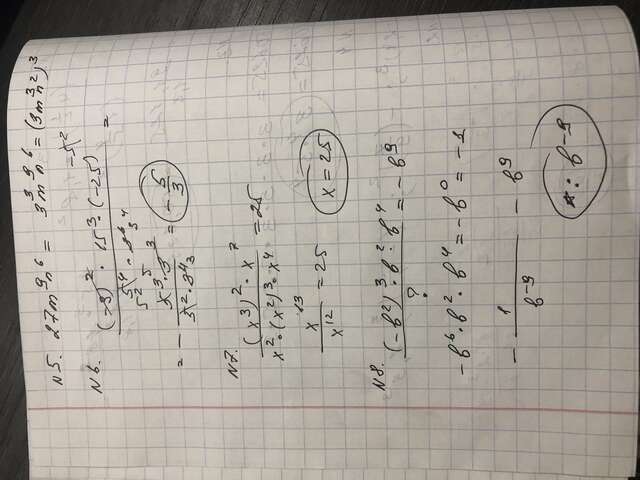 N5. 27m⁹n⁶ = 3³m⁹n⁶ = (3m³n²)³
N6. (-3)² · 15³ · (-25) =
= - = - 5/3
N7. (x³)² · x⁷ / x² · (x²)³ · x⁴ = 25
x¹³ / x¹² = 25 x = 25
N8. (-b²)³ · b² · b⁴ / ? = - b⁹
- b⁶ · b² · b⁴ = - b⁰ = - 1
- 1 / b⁻⁹ - b⁹
: b⁻⁹